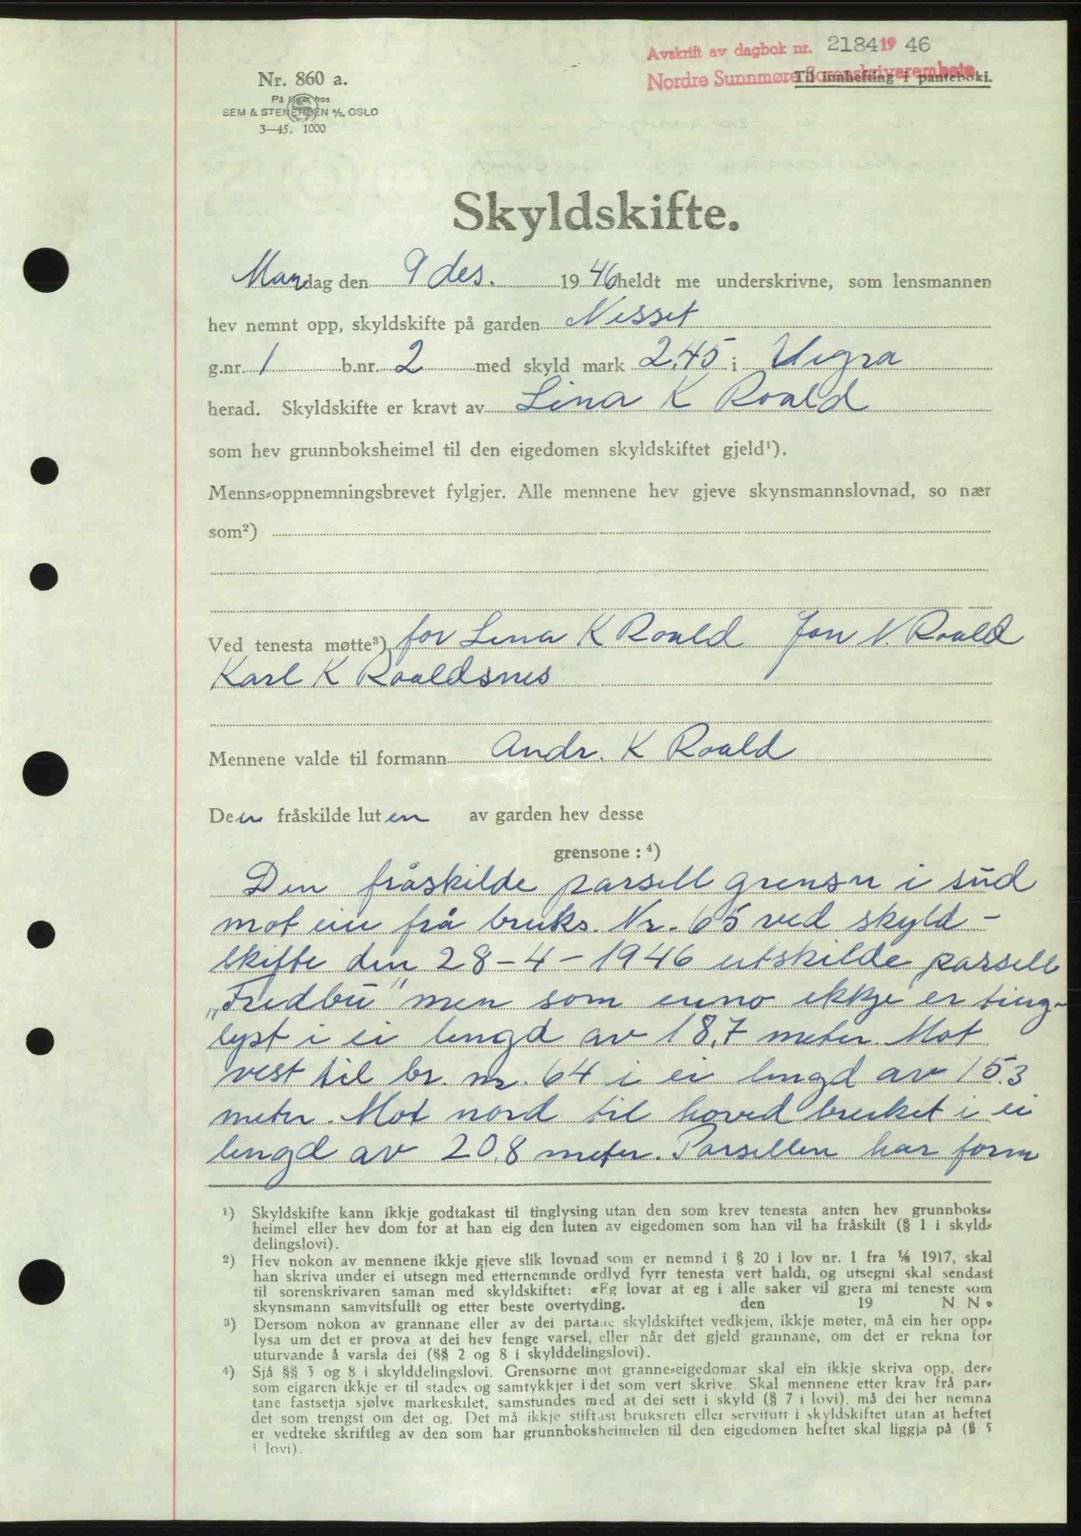 Avskrift av dagbok nr. 2184 1946
Nordre Sunnmøre Sorenskrivarembete
Til innhefting i panteboki.
Nr. 860 a.
På lager hos
SEM & STENERSEN A/S, OSLO
3—45. 1000
Skyldskifte.
Mandag den 9 des. 1946 heldt me underskrivne, som lensmannen
hev nemnt opp, skyldskifte på garden Nisset
g.nr. 1 b.nr. 2 med skyld mark 2,45 i Vigra
herad. Skyldskifte er kravt av Lina K Roald
som hev grunnboksheimel til den eigedomen skyldskiftet gjeld¹).
Menns-oppnemningsbrevet fylgjer. Alle mennene hev gjeve skynsmannslovnad, so nær
som²)
Ved tenesta møtte³) for Lina K Roald Jon N. Roald
Karl K Roaldsnes
Mennene valde til formann Andr. K Roald
Den fråskilde luten av garden hev desse
grensone : ⁴)
Den fråskilde parsell grensn i süd
mot ein frå bruks. Nr. 65 ved skyld-
skifte den 28-4-1946 utskilde parsell
„Fredbü" men som enno ikkje er ting-
lyst i ei lengd av 18,7 meter. Mot
vest til br. nr. 64 i ei lengd av 15.3
meter. Mot nord til hovedbruket i ei
lengd av 20,8 meter. Parsellen har form
¹) Skyldskifte kann ikkje godtakast til tinglysing utan den som krev tenesta anten hev grunnboks-
heimel eller hev dom for at han eig den luten av eigedomen som han vil ha fråskilt (§ 1 i skyld-
delingslovi).
²) Hev nokon av mennene ikkje gjeve slik lovnad som er nemnd i § 20 i lov nr. 1 fra 1/6 1917, skal
han skriva under ei utsegn med etternemnde ordlyd fyrr tenesta vert haldi, og utsegni skal sendast
til sorenskrivaren saman med skyldskiftet: «Eg lovar at eg i alle saker vil gjera mi teneste som
skynsmann samvitsfullt og etter beste overtyding. den 19 N. N.»
³) Dersom nokon av grannane eller av dei partane skyldskiftet vedkjem, ikkje møter, må ein her opp-
lysa um det er prova at dei hev fenge varsel, eller når det gjeld grannane, om det er rekna for
uturvande å varsla dei (§§ 2 og 8 i skylddelingslovi).
⁴) Sjå §§ 3 og 8 i skylddelingslovi. Grensorne mot granne-eigedomar skal ein ikkje skriva opp, der-
som eigaren ikkje er til stades og samtykkjer i det som vert skrive. Skal mennene etter krav frå par-
tane fastsetja sjølve markeskilet, samstundes med at dei sett i skyld (§ 7 i lovi), må dei her nemna
det som trengst om det og. Det må ikkje stiftast bruksrett eller servitutt i skyldskiftet utan at heftet
er vedteke skriftleg av den som har grunnboksheimelen til den eigedomen heftet skal liggja på (§ 5
i lovi).